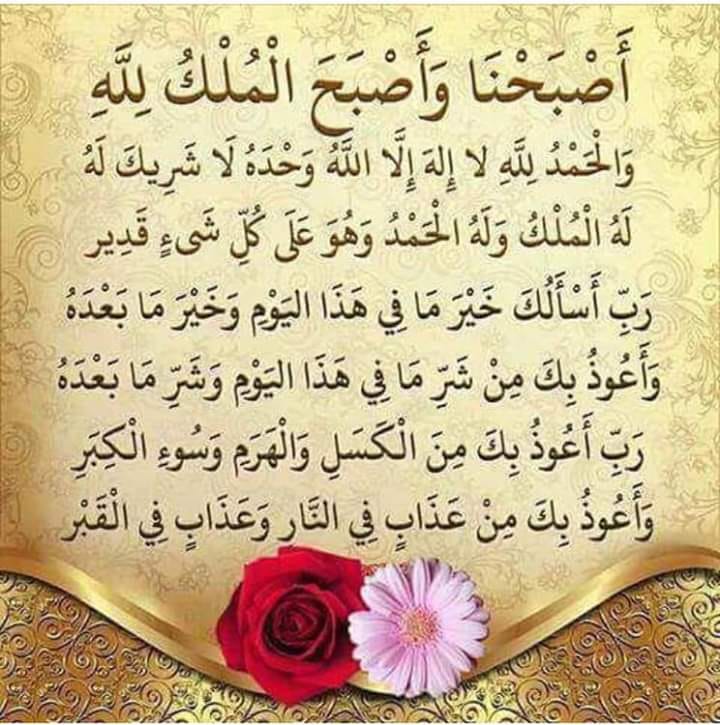 أَصْبَحْنَا وَأَصْبَحَ الْمُلْكُ لِلَّهِ
وَالْحَمْدُ لِلَّهِ لا إِلهَ إِلَّا اللَّهُ وَحْدَهُ لَا شَرِيكَ لَهُ
لَهُ الْمُلْكُ وَلَهُ الْحَمْدُ وَهُوَ عَلَى كُلِّ شَىءٍ قَدِير
رَبِّ أَسْأَلُكَ خَيْرَ مَا فِي هَذَا اليَوْمِ وَخَيْرَ مَا بَعْدَهُ
وَأَعُوذُ بِكَ مِنْ شَرِّ مَا فِي هَذَا اليَوْمِ وَشَرِّ مَا بَعْدَهُ
رَبِّ أَعُوذُ بِكَ مِنَ الْكَسَلِ وَالْهَرَمِ وَسُوءِ الْكِبَرِ
وَأَعُوذُ بِكَ مِنْ عَذَابٍ فِي النَّارِ وَعَذَابٍ فِي الْقَبْرِ